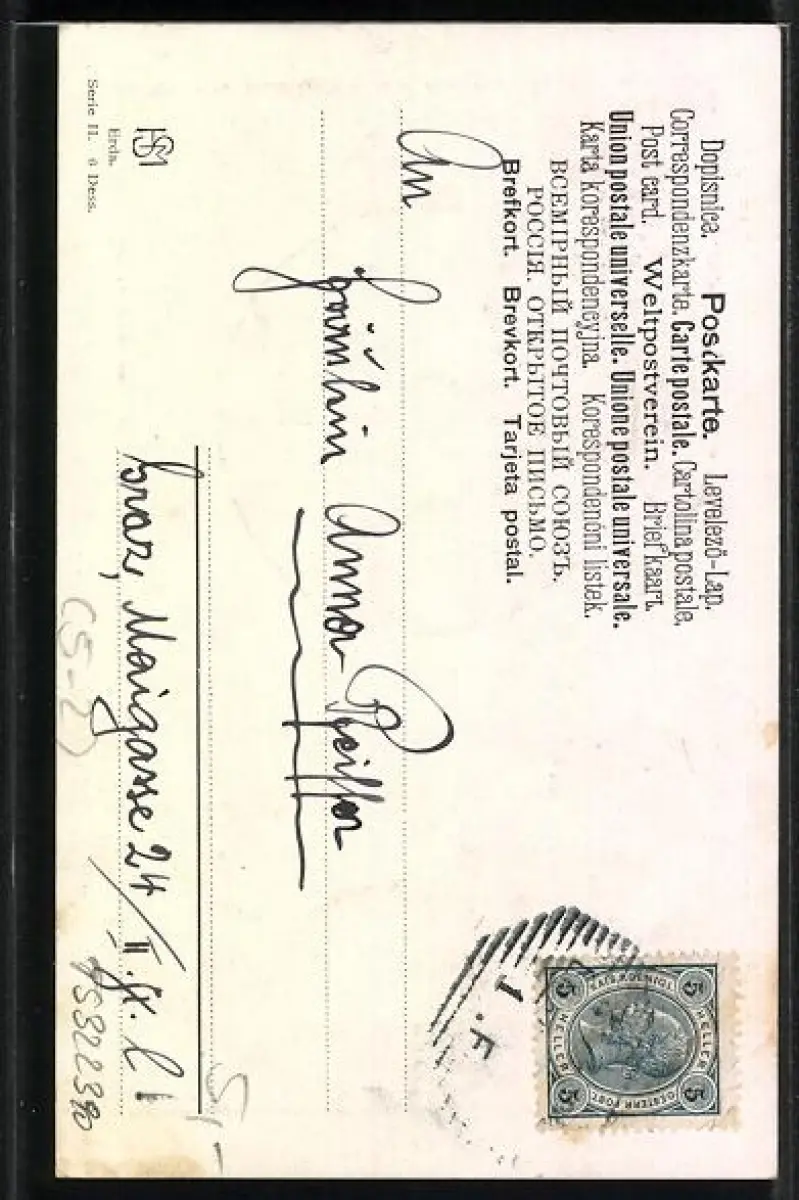 Dopisnica. Postkarte. Levelező-Lap.
Correspondenzkarte. Carte postale. Cartolina postale.
Post card. Weltpostverein. Briefkaart.
Union postale universelle. Unione postale universale.
Karta korespondencyjna. Korespondenční lístek.
ВСЕМІРНЫЙ ПОЧТОВЫЙ СОЮЗЪ.
РОССІЯ. ОТКРЫТОЕ ПИСЬМО.
Brefkort. Brevkort. Tarjeta postal.
5 HELLER 5 HELLER
KAIS. KÖNIGL.
OESTERR. POST.
5 5
1 . F
An
Fräulein Anna Pfeiffer
Graz, Maigasse 24/II. St. l!
(5-2)
5322390
HSM
Erda.
Serie II. 6 Dess.